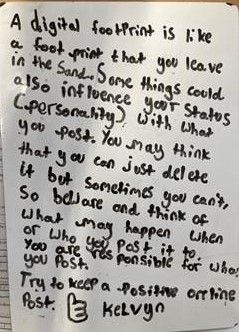 A digital footprint is like
a foot print that you leave
in the Sand. Some things could
also influence your Status
(personality) with what
you post. You may think
that you can just delete
it but sometimes you can't,
So beware and think of
what may happen when
or who you Post it to.
You are responsible for who
you Post.
Try to keep a positive online
Post. Kelvyn